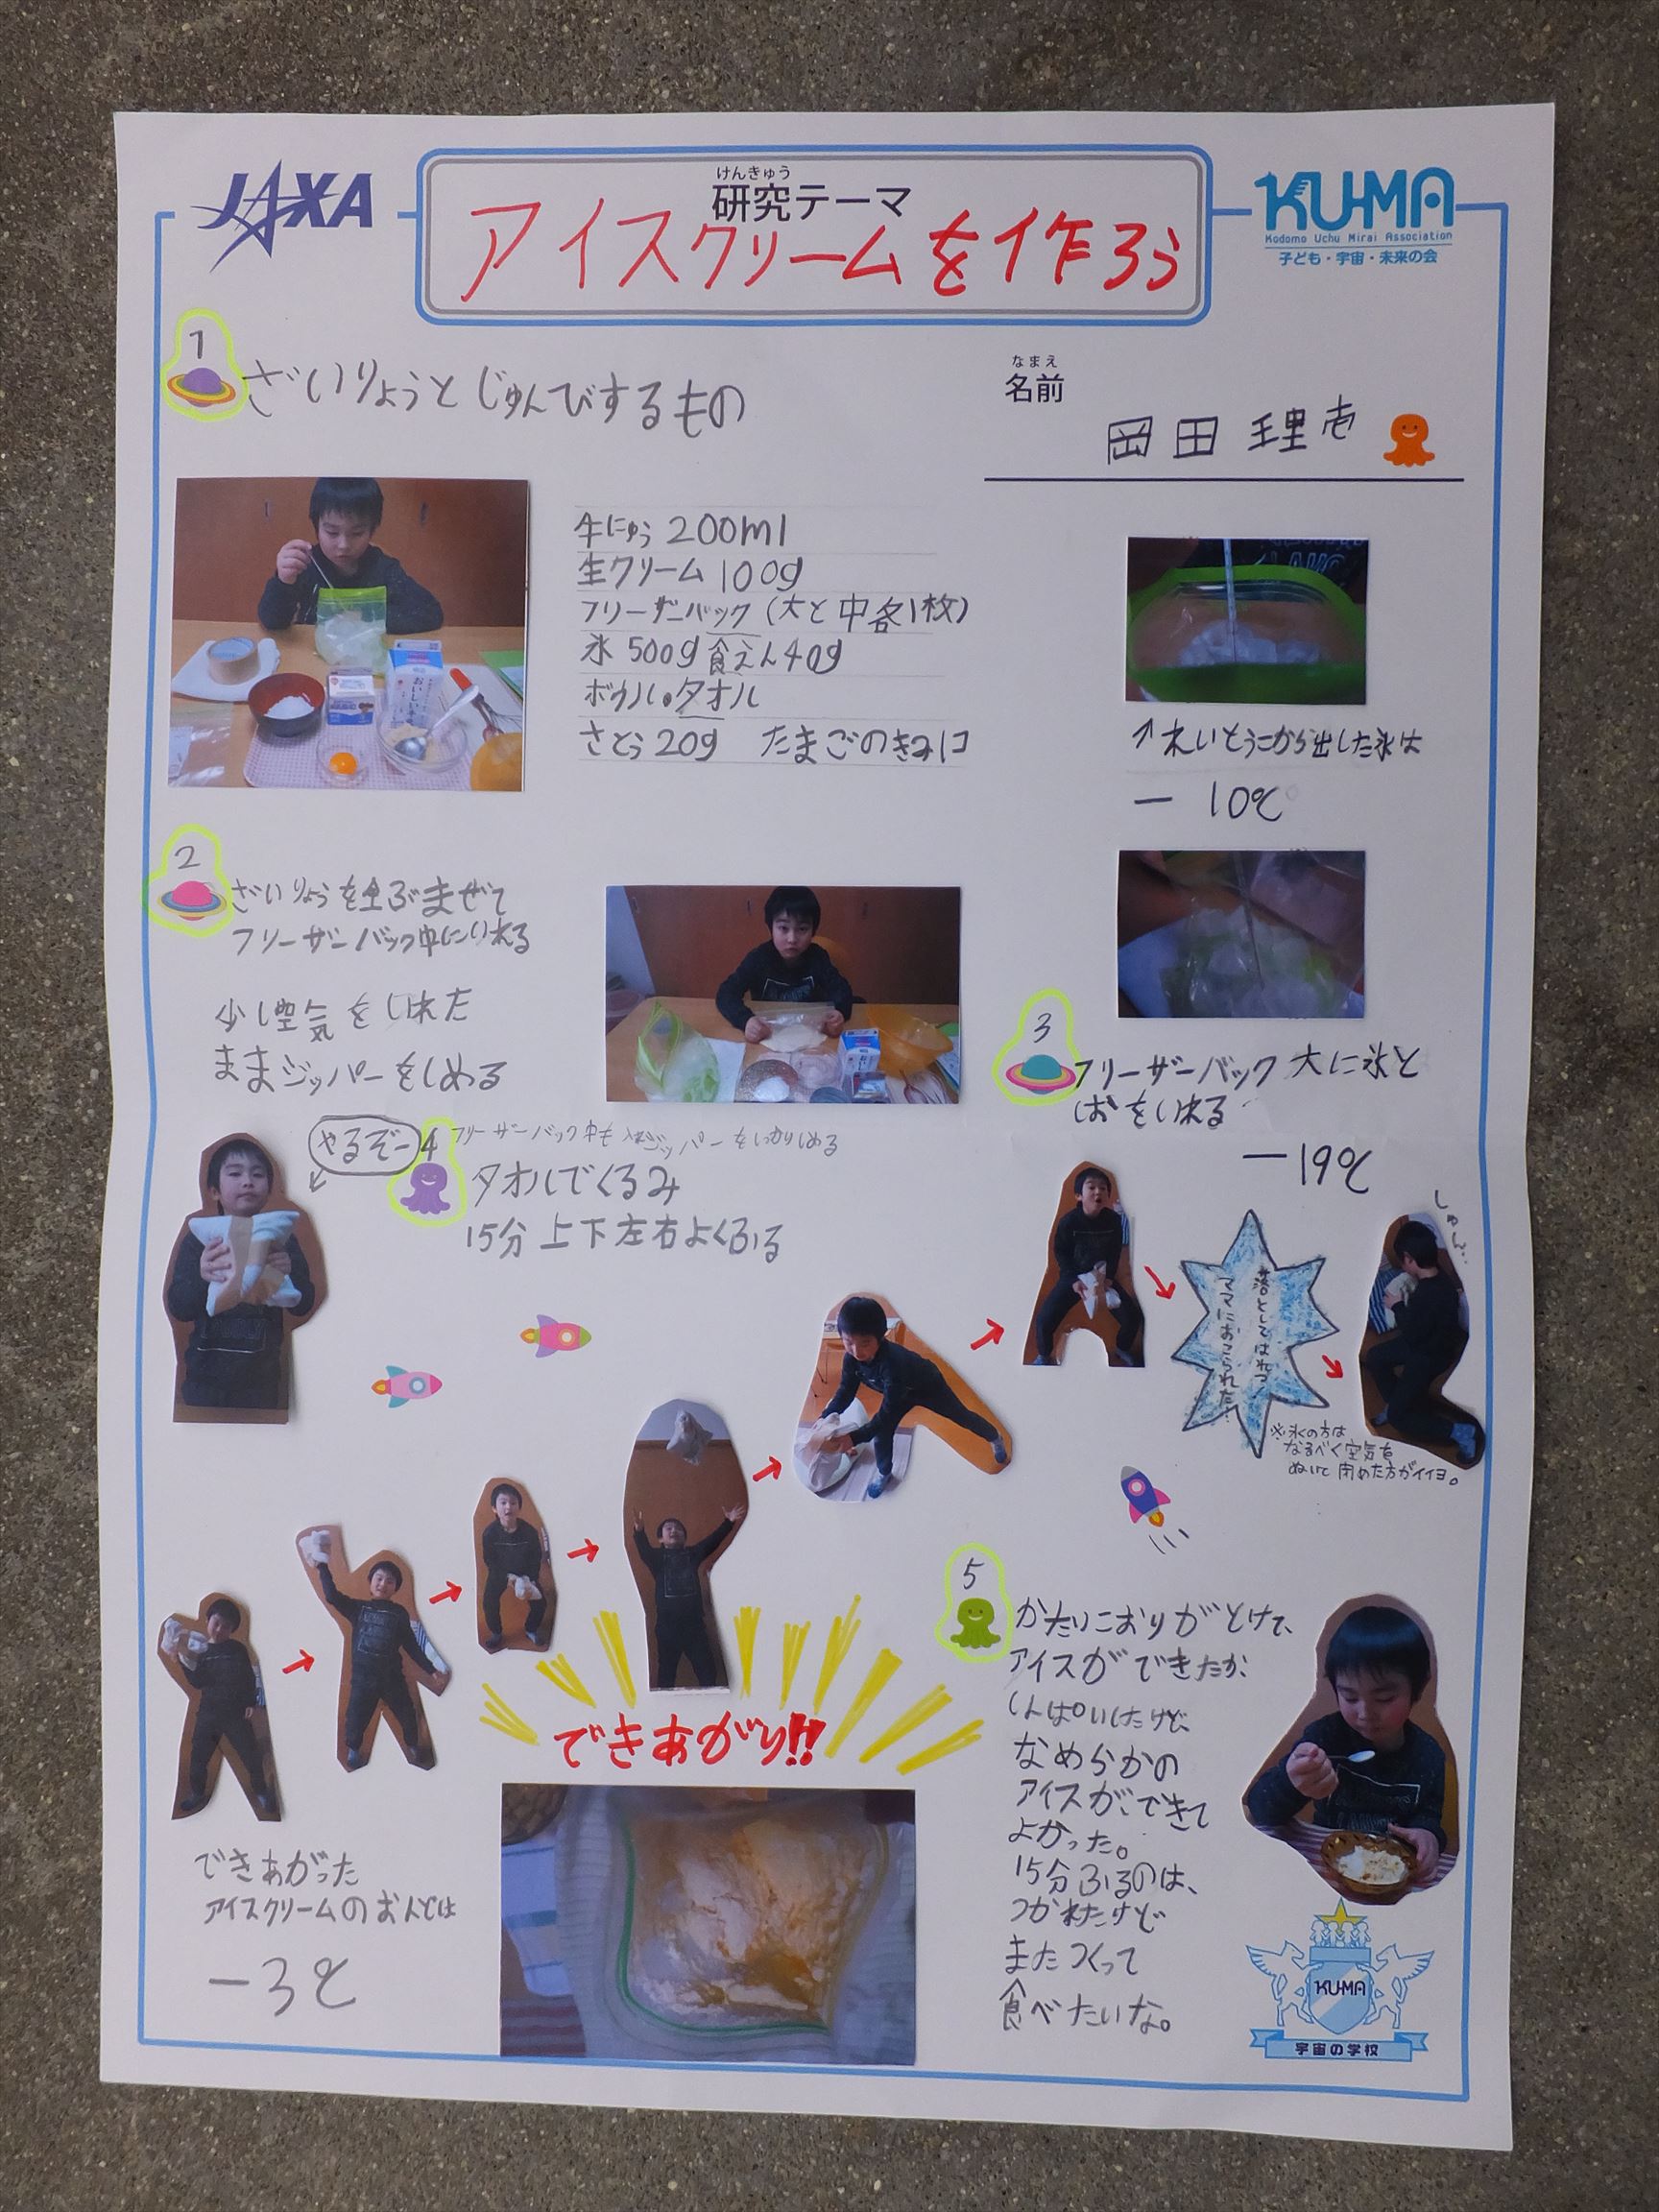 JAXA
けんきゅう
研究テーマ
アイスクリームを作ろう
KU-MA
Kodomo Uchu Mirai Association
子ども・宇宙・未来の会
1
ざいりょうとじゅんびするもの
なまえ
名前
岡田理壱
牛にゅう 200ml
生クリーム 100g
フリーザーバック (大と中各1枚)
氷 500g 食えん40g
ボウル。タオル
さとう20g たまごのきみ1コ
↑れいとうこから出した氷は
－10℃
2
ざいりょうを全ぶまぜて
フリーザーバック中にいれる
少し空気をいれた
ままジッパーをしめる
3
フリーザーバック大に氷と
しおをいれる
－19℃
やるぞー
4
フリーザーバック中も入れジッパーをしっかりしめる
タオルでくるみ
15分上下左右よくふる
落としてはれつ!
ママにおこられた…
しゅん…
※氷の方は
なるべく空気を
ぬいて閉めた方がイイヨ。
できあがり!!
できあがった
アイスクリームのおんどは
－3℃
5
かたいこおりがとけて、
アイスができたか
しんぱいしたけど、
なめらかの
アイスができて
よかった。
15分ふるのは、
つかれたけど
またつくって
食べたいな。
KU-MA
宇宙の学校